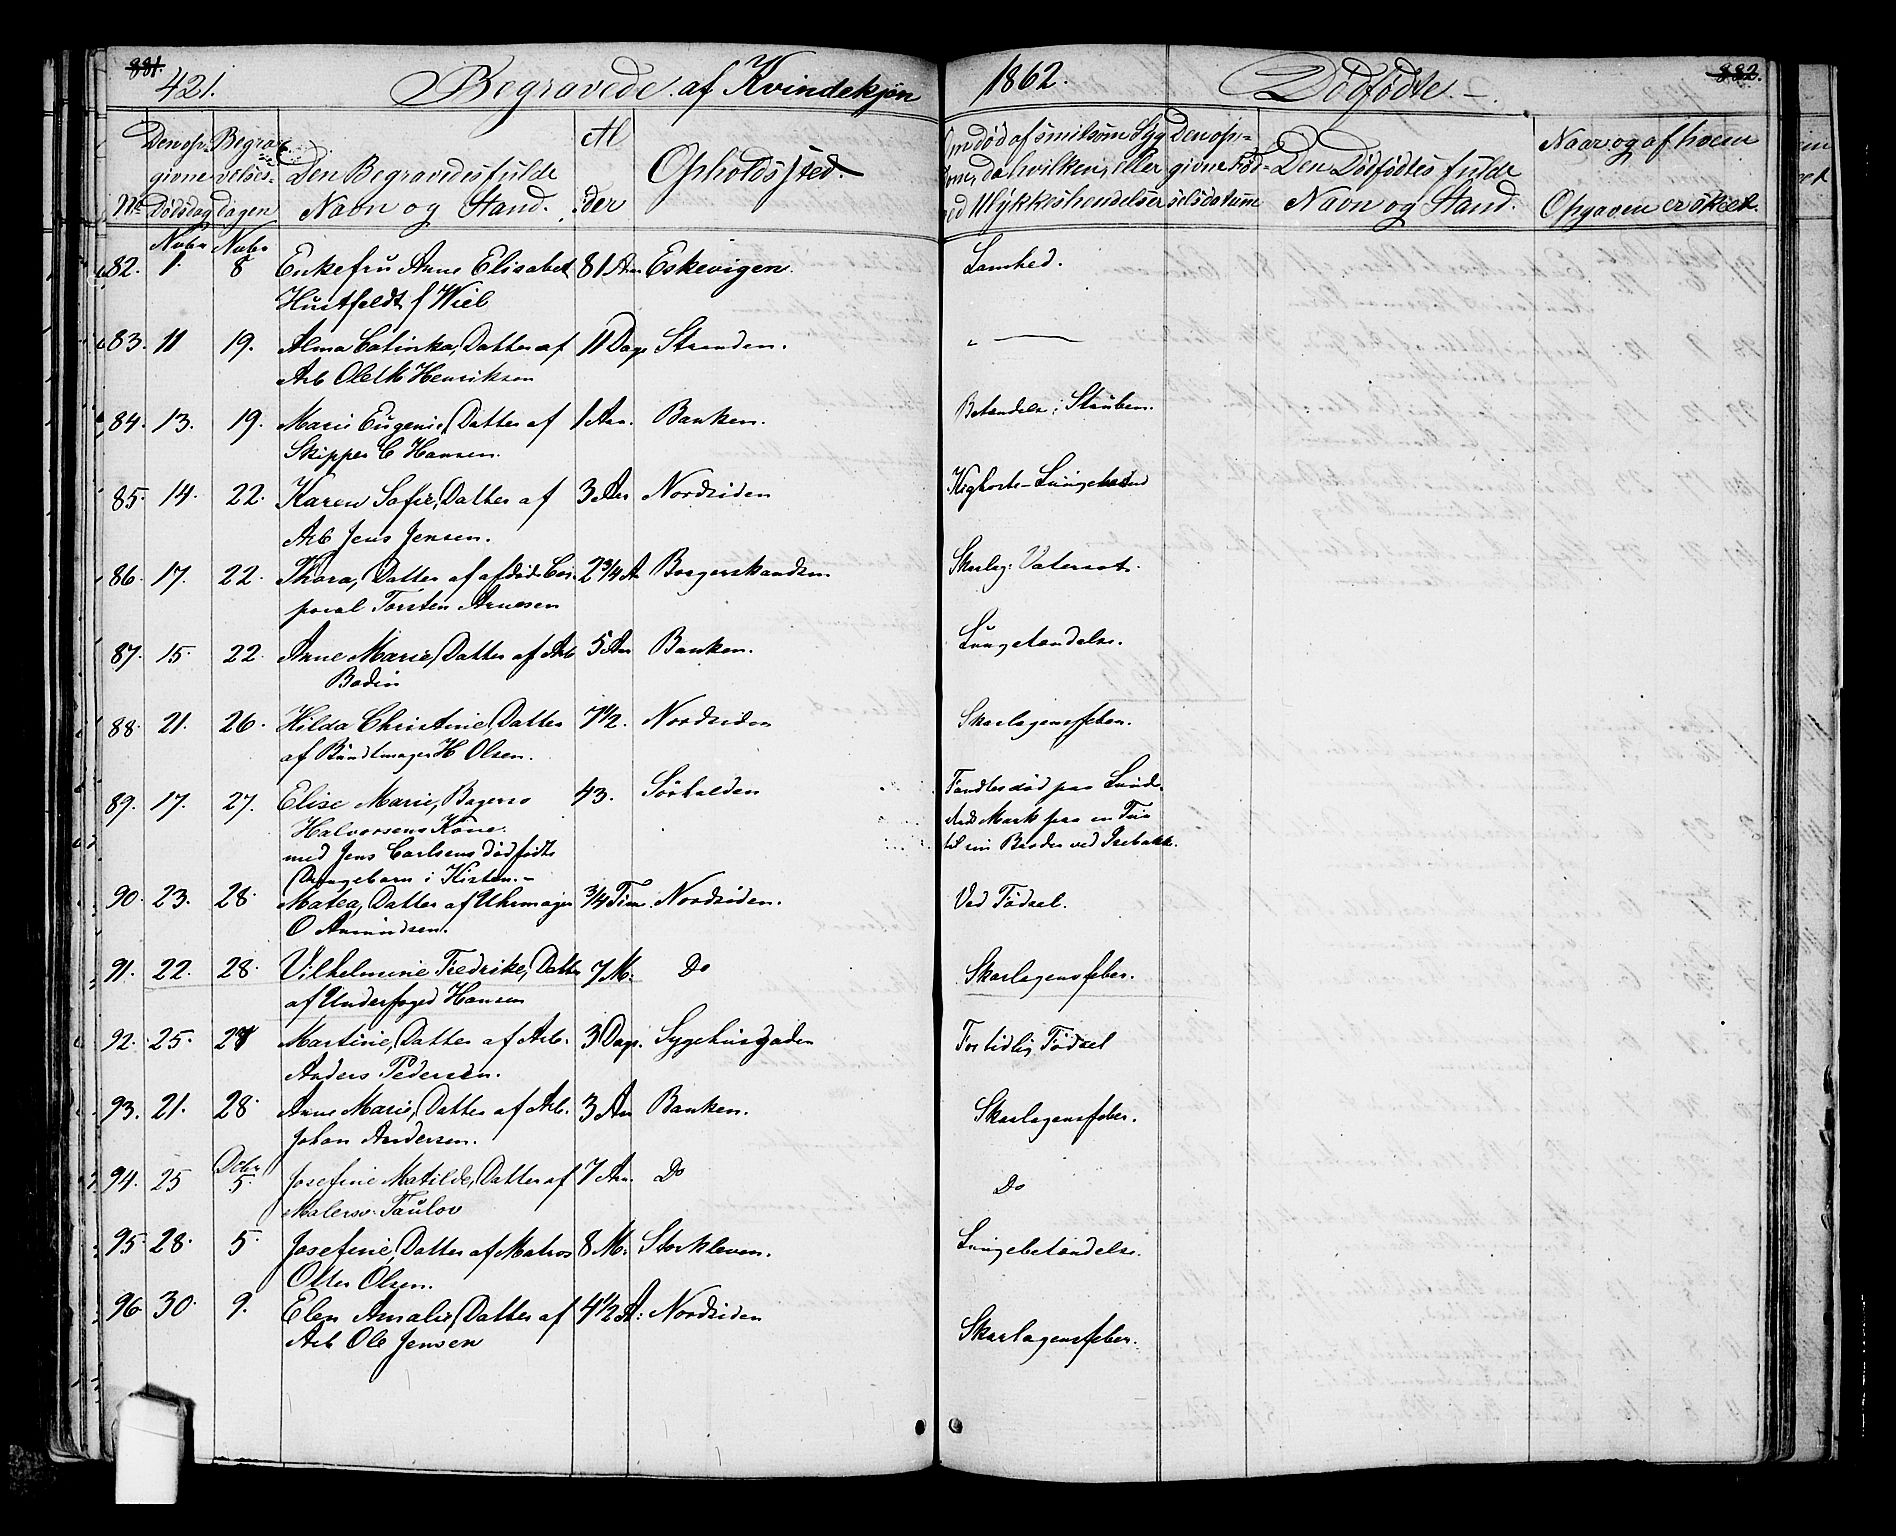 881.
421.
Begravede af Kvindekjøn
1862.
Dødfødte.-
882.
No
Den op-
givne
Dødsdag
Begrav
elses-
dagen
Den Begravedes fulde
Navn og Stand.
Al
der
Opholdssted.
Om død af smitsom Syg
dom, da hvilken, eller
ved Ulykkeshendelser
Den op-
givne Fød-
selsdatum
Den Dødfødtes fulde
Navn og Stand.
Naar og af hvem
Opgaven er skeet.
Novbr Novbr
82. 1. 8 Enkefru Anne Elisabet 81 Aar Eskevigen. Lamhed.
Huitfeldt f Wiel
83. 11 19. Alma Catinka, Datter af 11 Dage Stranden. " —
Arb Ole M Henriksen
84. 13. 19. Marie Eugenie, Datter af 1 Aar. Banken. Betændelse i Struben.
Skipper C Hansen.
85. 14. 22. Karen Sofie, Datter af 3 Aar Nordsiden Kighoste-Lungebetænd
Arb Jens Jensen.
86. 17. 22. Thora, Datter af afdøde Cor 2 3/4 A Borgerskandsen Skarlag: Vatersot.
poral Torsten Arnesen
87. 15. 22. Anne Marie, Datter af Arb 5 Aar Banken. Lungetændelse.
Bodin
88. 21. 26. Hilda Christine, Datter 7 1/2. Nordsiden Skarlagensfeber.
af Bundtmager H Olsen.
89. 17. 27. Elise Marie, Bagers 43. Sørhalden Fandtes død paa
Halvorsens Kone. Mark paa en
med Jens Carlsens dødfødte til en Broder ved Isebakke.
Drengebarn i Kisten.-
90. 23. 28. Matea, Datter af Uhrmager 3/4 Time. Nordsiden. Ved Fødsel.
O Amundsen.
91. 22. 28. Vilhelmine Fredrike, Datter 7 M: Do Skarlagensfeber.
af Underfoged Hansen
92. 25. 28 Martine, Datter af Arb. 3 Dage. Sygehusgaden For tidlig Fødsel
Anders Pedersen.
93. 21. 28. Anne Marie, Datter af Arb. 3 Aar Banken. Skarlagensfeber.
Johan Andersen.
Decbr
94. 25 5. Josefine Matilde, Datter af 7 Aar. Do Do
Malersv. Taulov
95. 28. 5. Josefine, Datter af Matros 8 M. Storkleven. Lungebetændelse.
Otter Olsen.
96 30. 9. Elen Amalie, Datter af 4 1/2 A: Nordsiden Skarlagensfeber.
Arb Ole Jensen